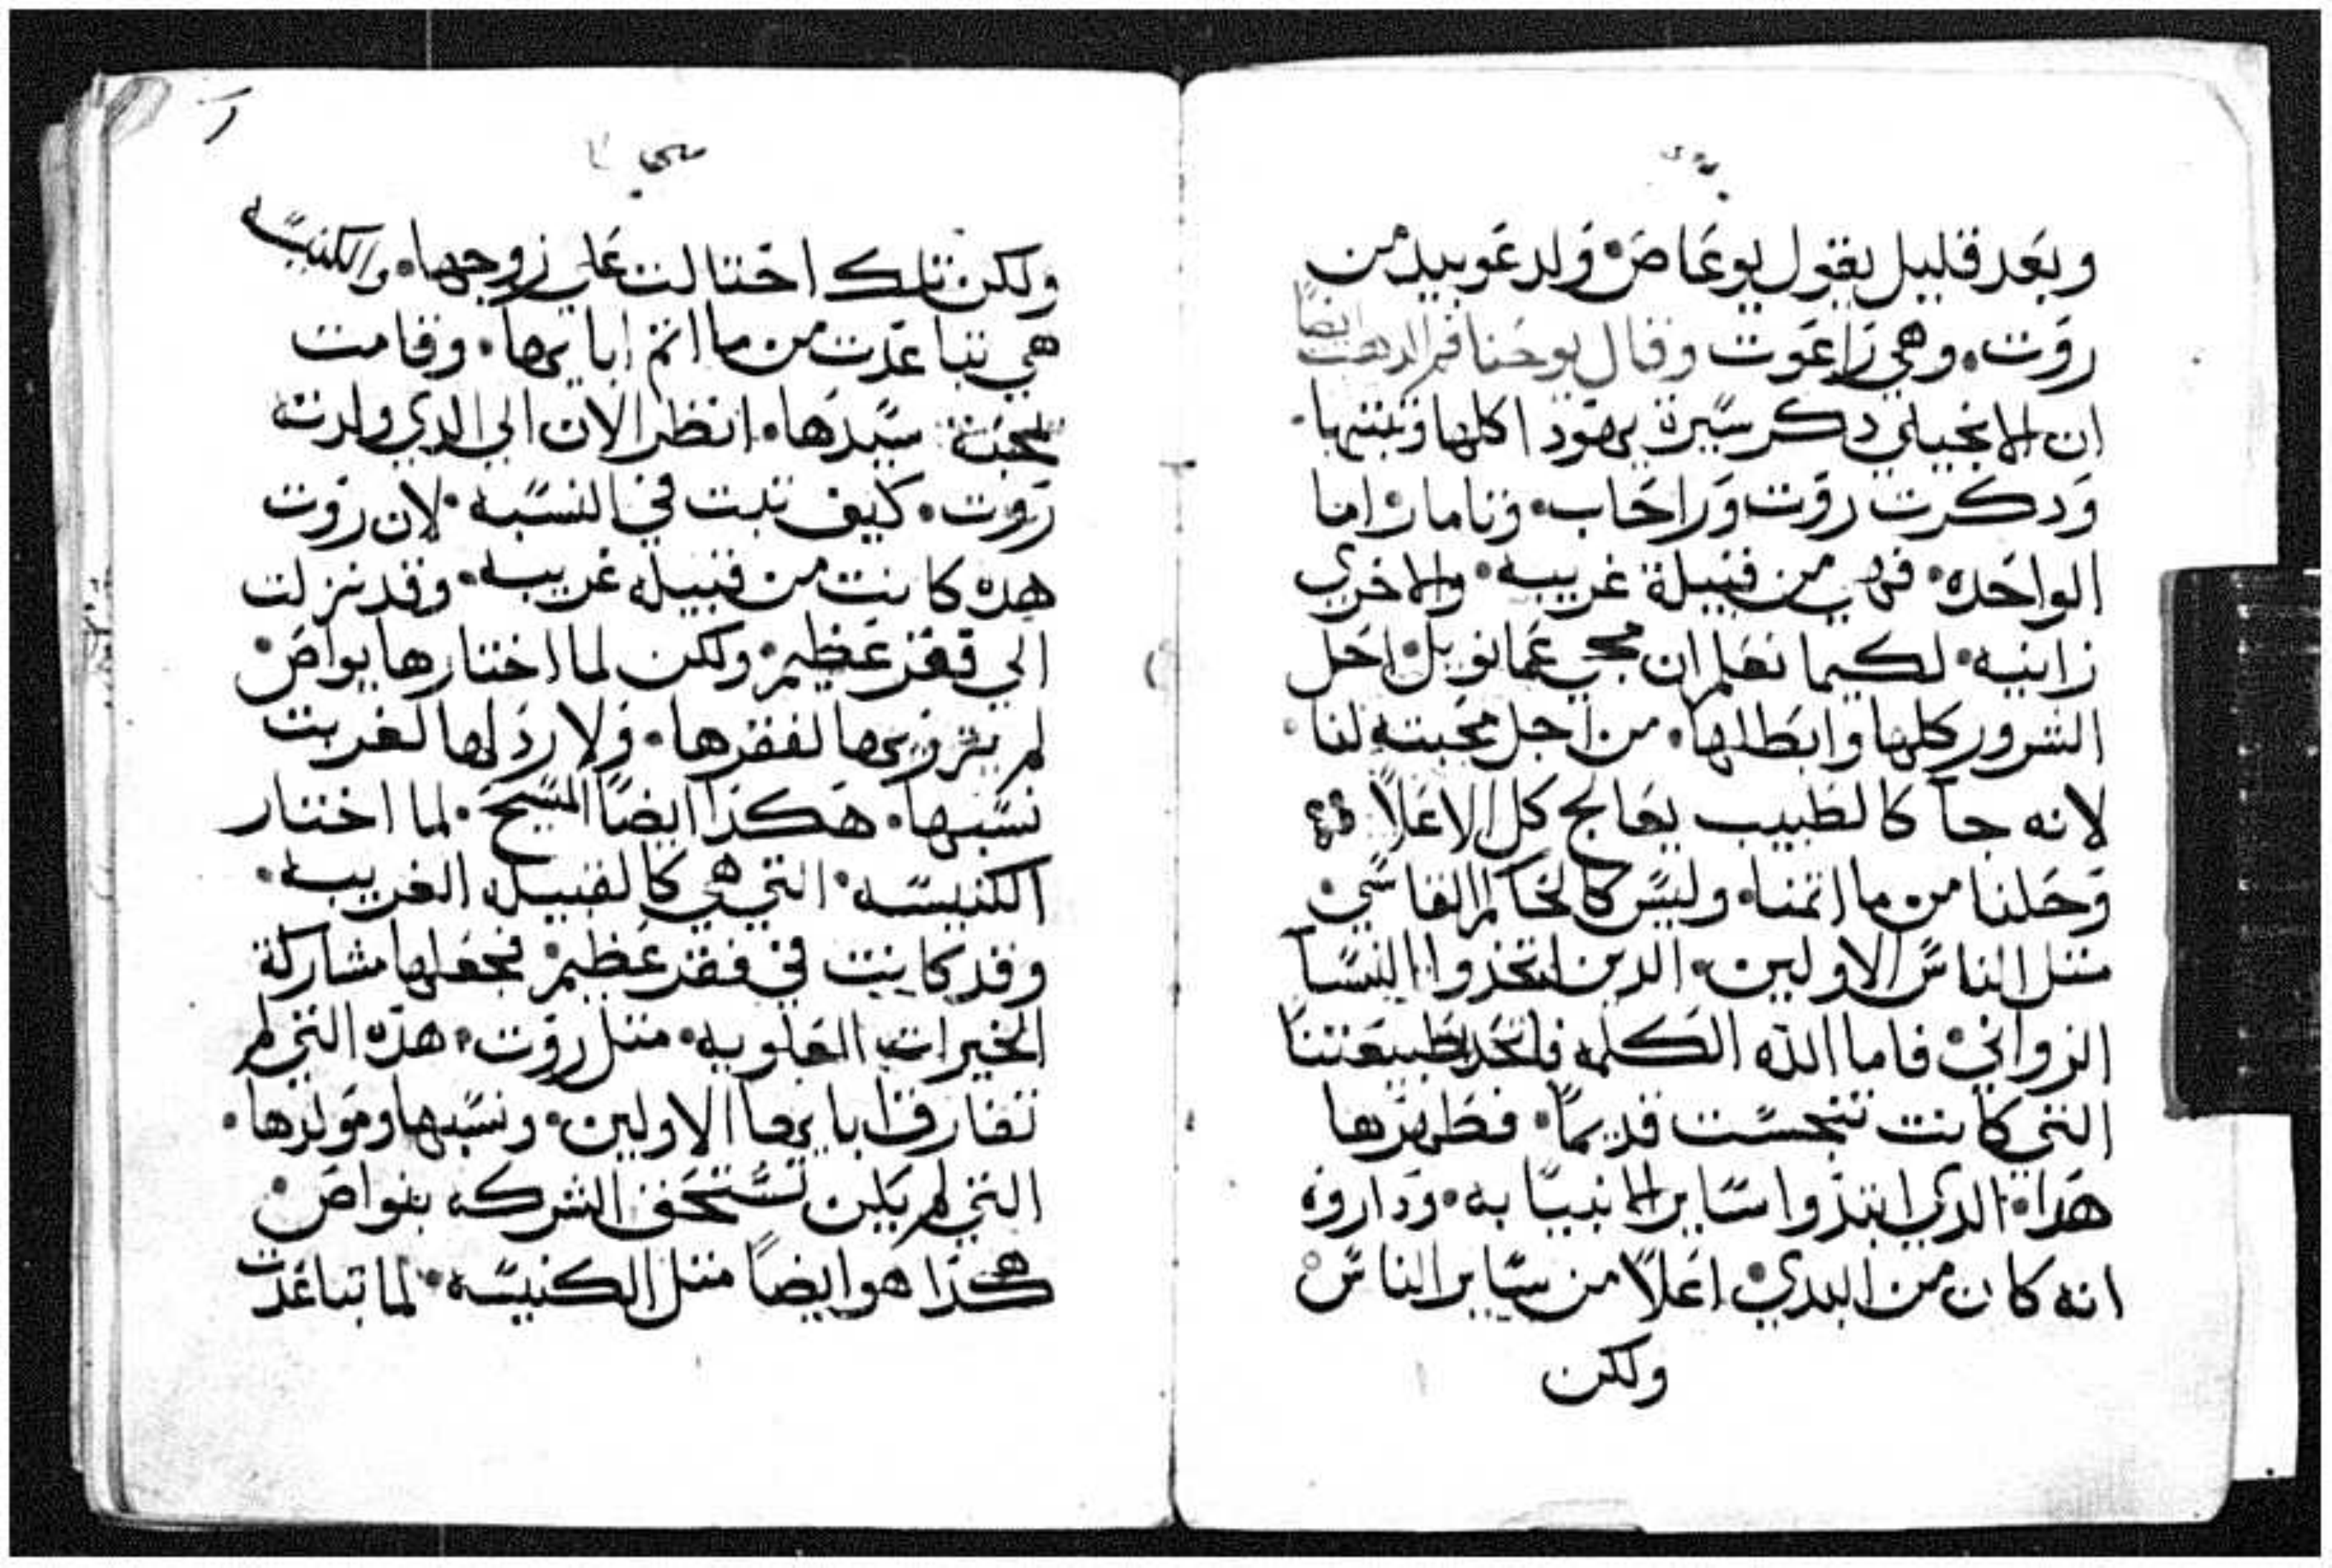 وبعد قليل يقول بوعاص ولد عوبيد من
روت. وهي زاعوت وقال يوحنا فم الدهب ايضا
ان الانجيلي دكر سيرة يهودا كلها وتبتها.
ودكرت روت وراحاب. وتامار اما
الواحده. فهي من قبيلة غريبه. والاخري
زانيه. لكيما تعلم ان مجي عمانويل احل
الشرور كلها وابطلها. من اجل محبته لنا.
لانه جا كالطبيب يعالج كل الاعلا
وحلنا من ما اتمنا. وليس كالحاكم القاسي.
متل الناس الاولين. الدين اتخذوا النسا
الزواني. فاما الله الكلمه فاتحد بطبيعتنا
التي كانت تنجست قديما. فطهرها
هدا. الدي انبذوا ساير الانبيا به. وداروه
انه كان من البدي. اعلا من ساير الناس
ولكن
متي
ولكن تلك احتالت علي زوجها. والكنيسه
هي تباعدت من ماا اتم ابايها. وقامت
لمحبة سيدها. انظر الان الي الدي ولدته
روت. كيف تبت في النسبه. لان روت
هده كانت من قبيله غريبه. وقد نزلت
الي فقر عظيم. ولكن لما اختارها بواص.
لم يزري بها لفقرها. ولا ردلها لغربت
نسبها. هكذا ايضا المسيح. لما اختار
الكنيسه. التي هي كالقبيله الغريبه.
وقد كانت في فقر عظيم. فجعلها مشاركة
الخيرات العلويه. متل روت. هذه التي لم
تفارق ابايها الاولين. ونسبها ومولدها.
التي لم يكن تستحق الشركه بنواص.
هكذا هو ايضا متل الكنيسه. لما تباعدت